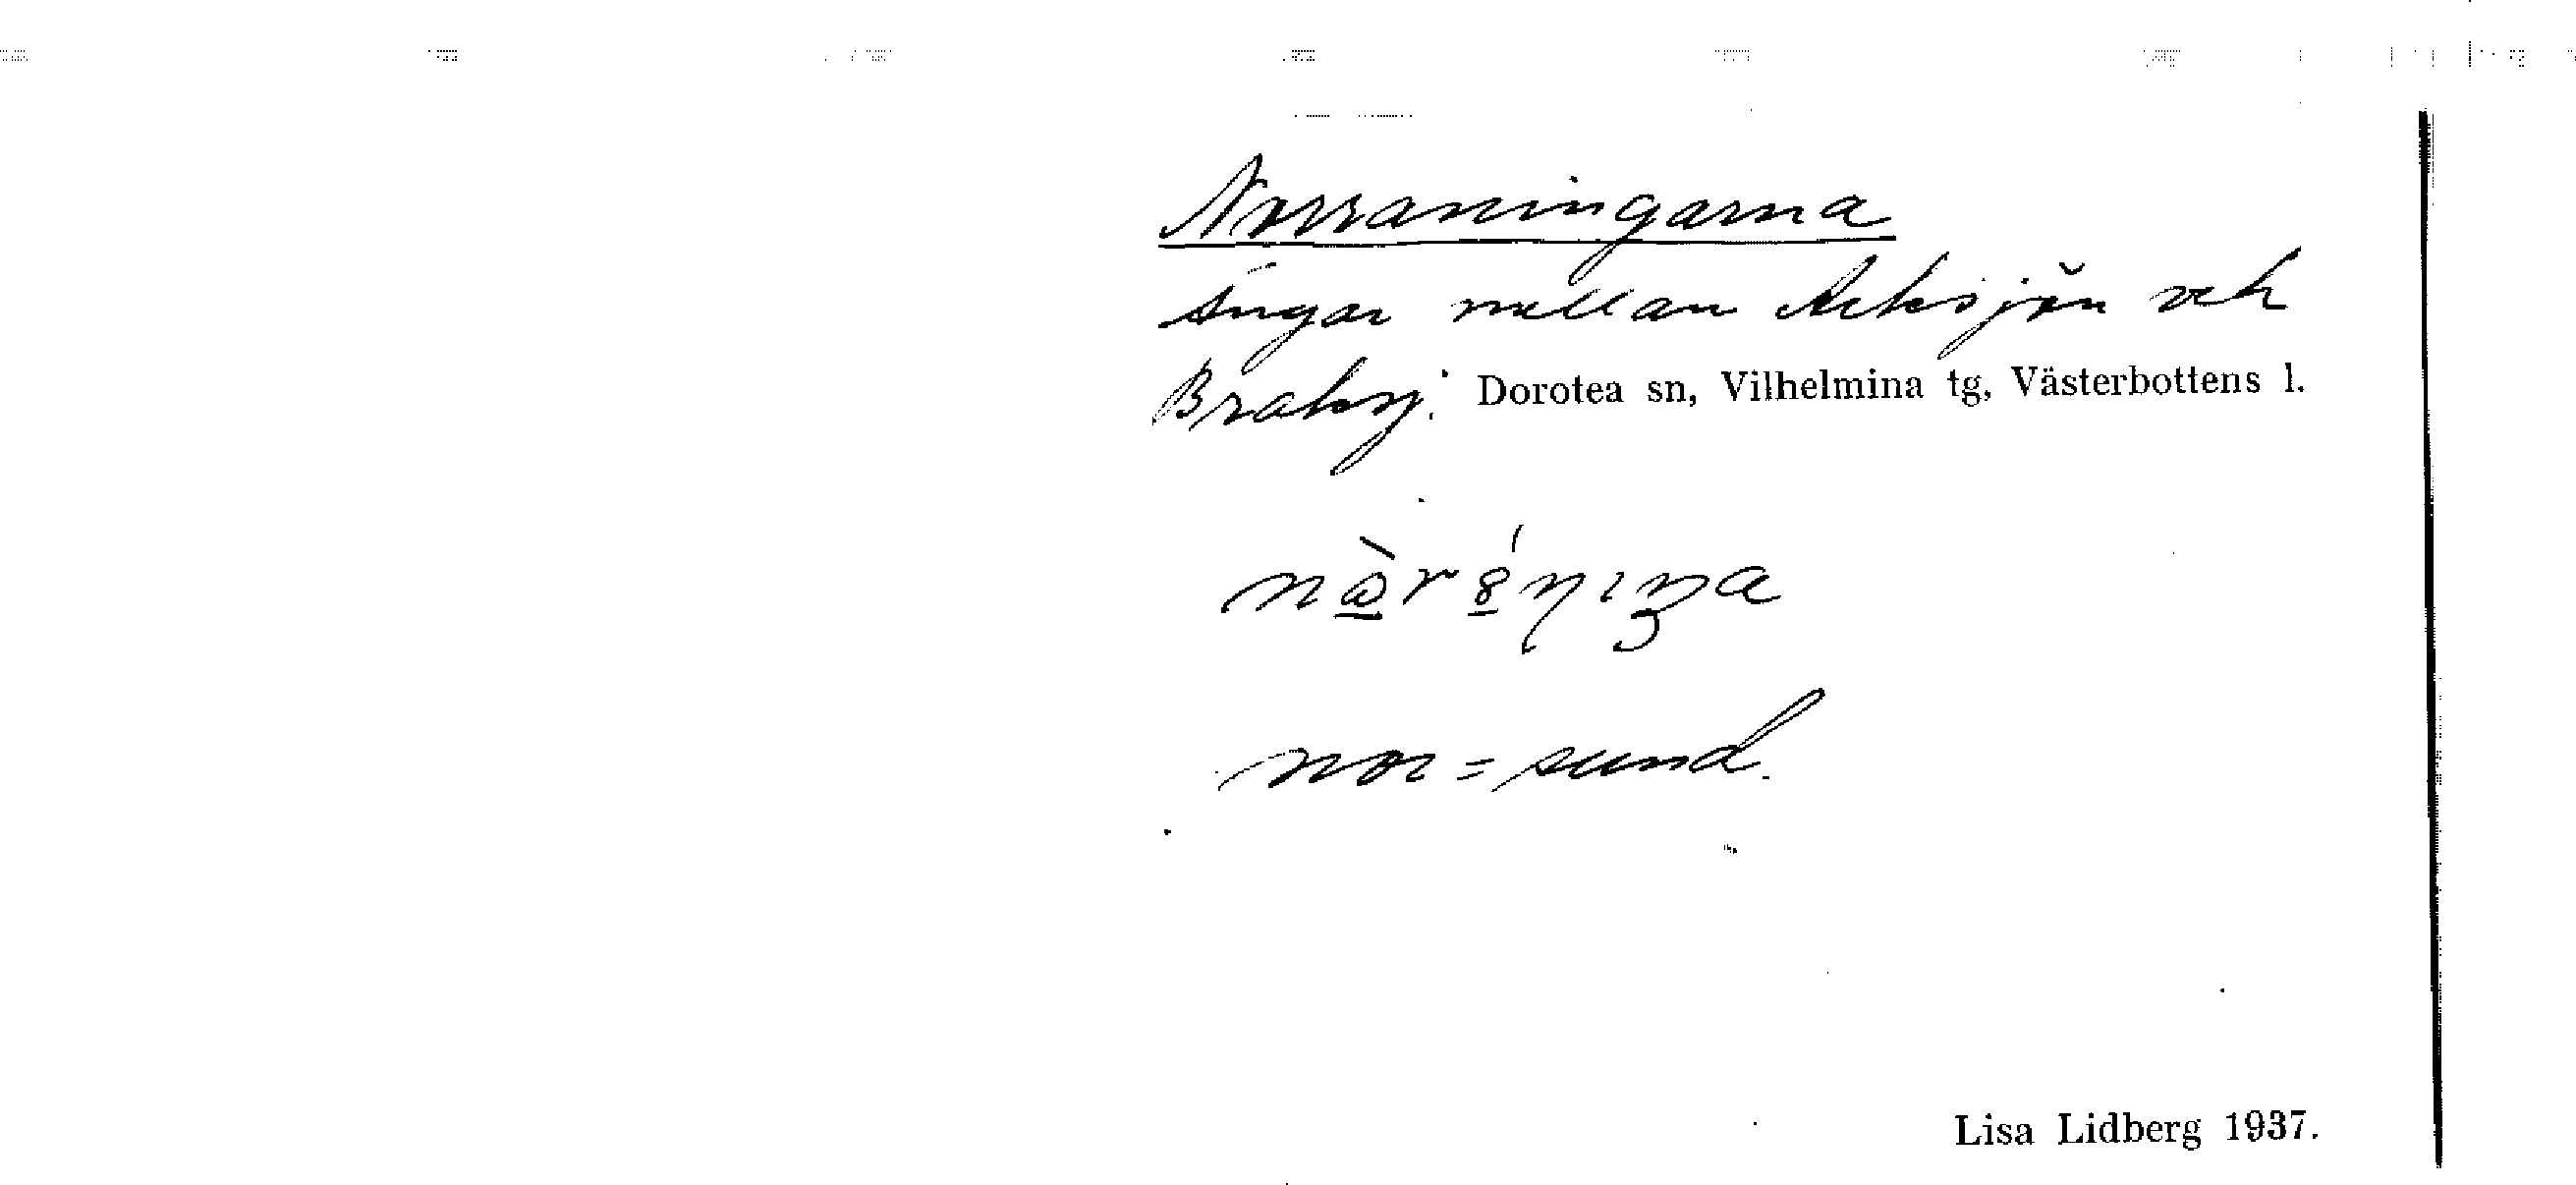 Norraningarna
ängar mellan Arksjön och
Braksj. Dorotea sn, Vilhelmina tg, Västerbottens l.
nor = sund.
Lisa Lidberg 1937.